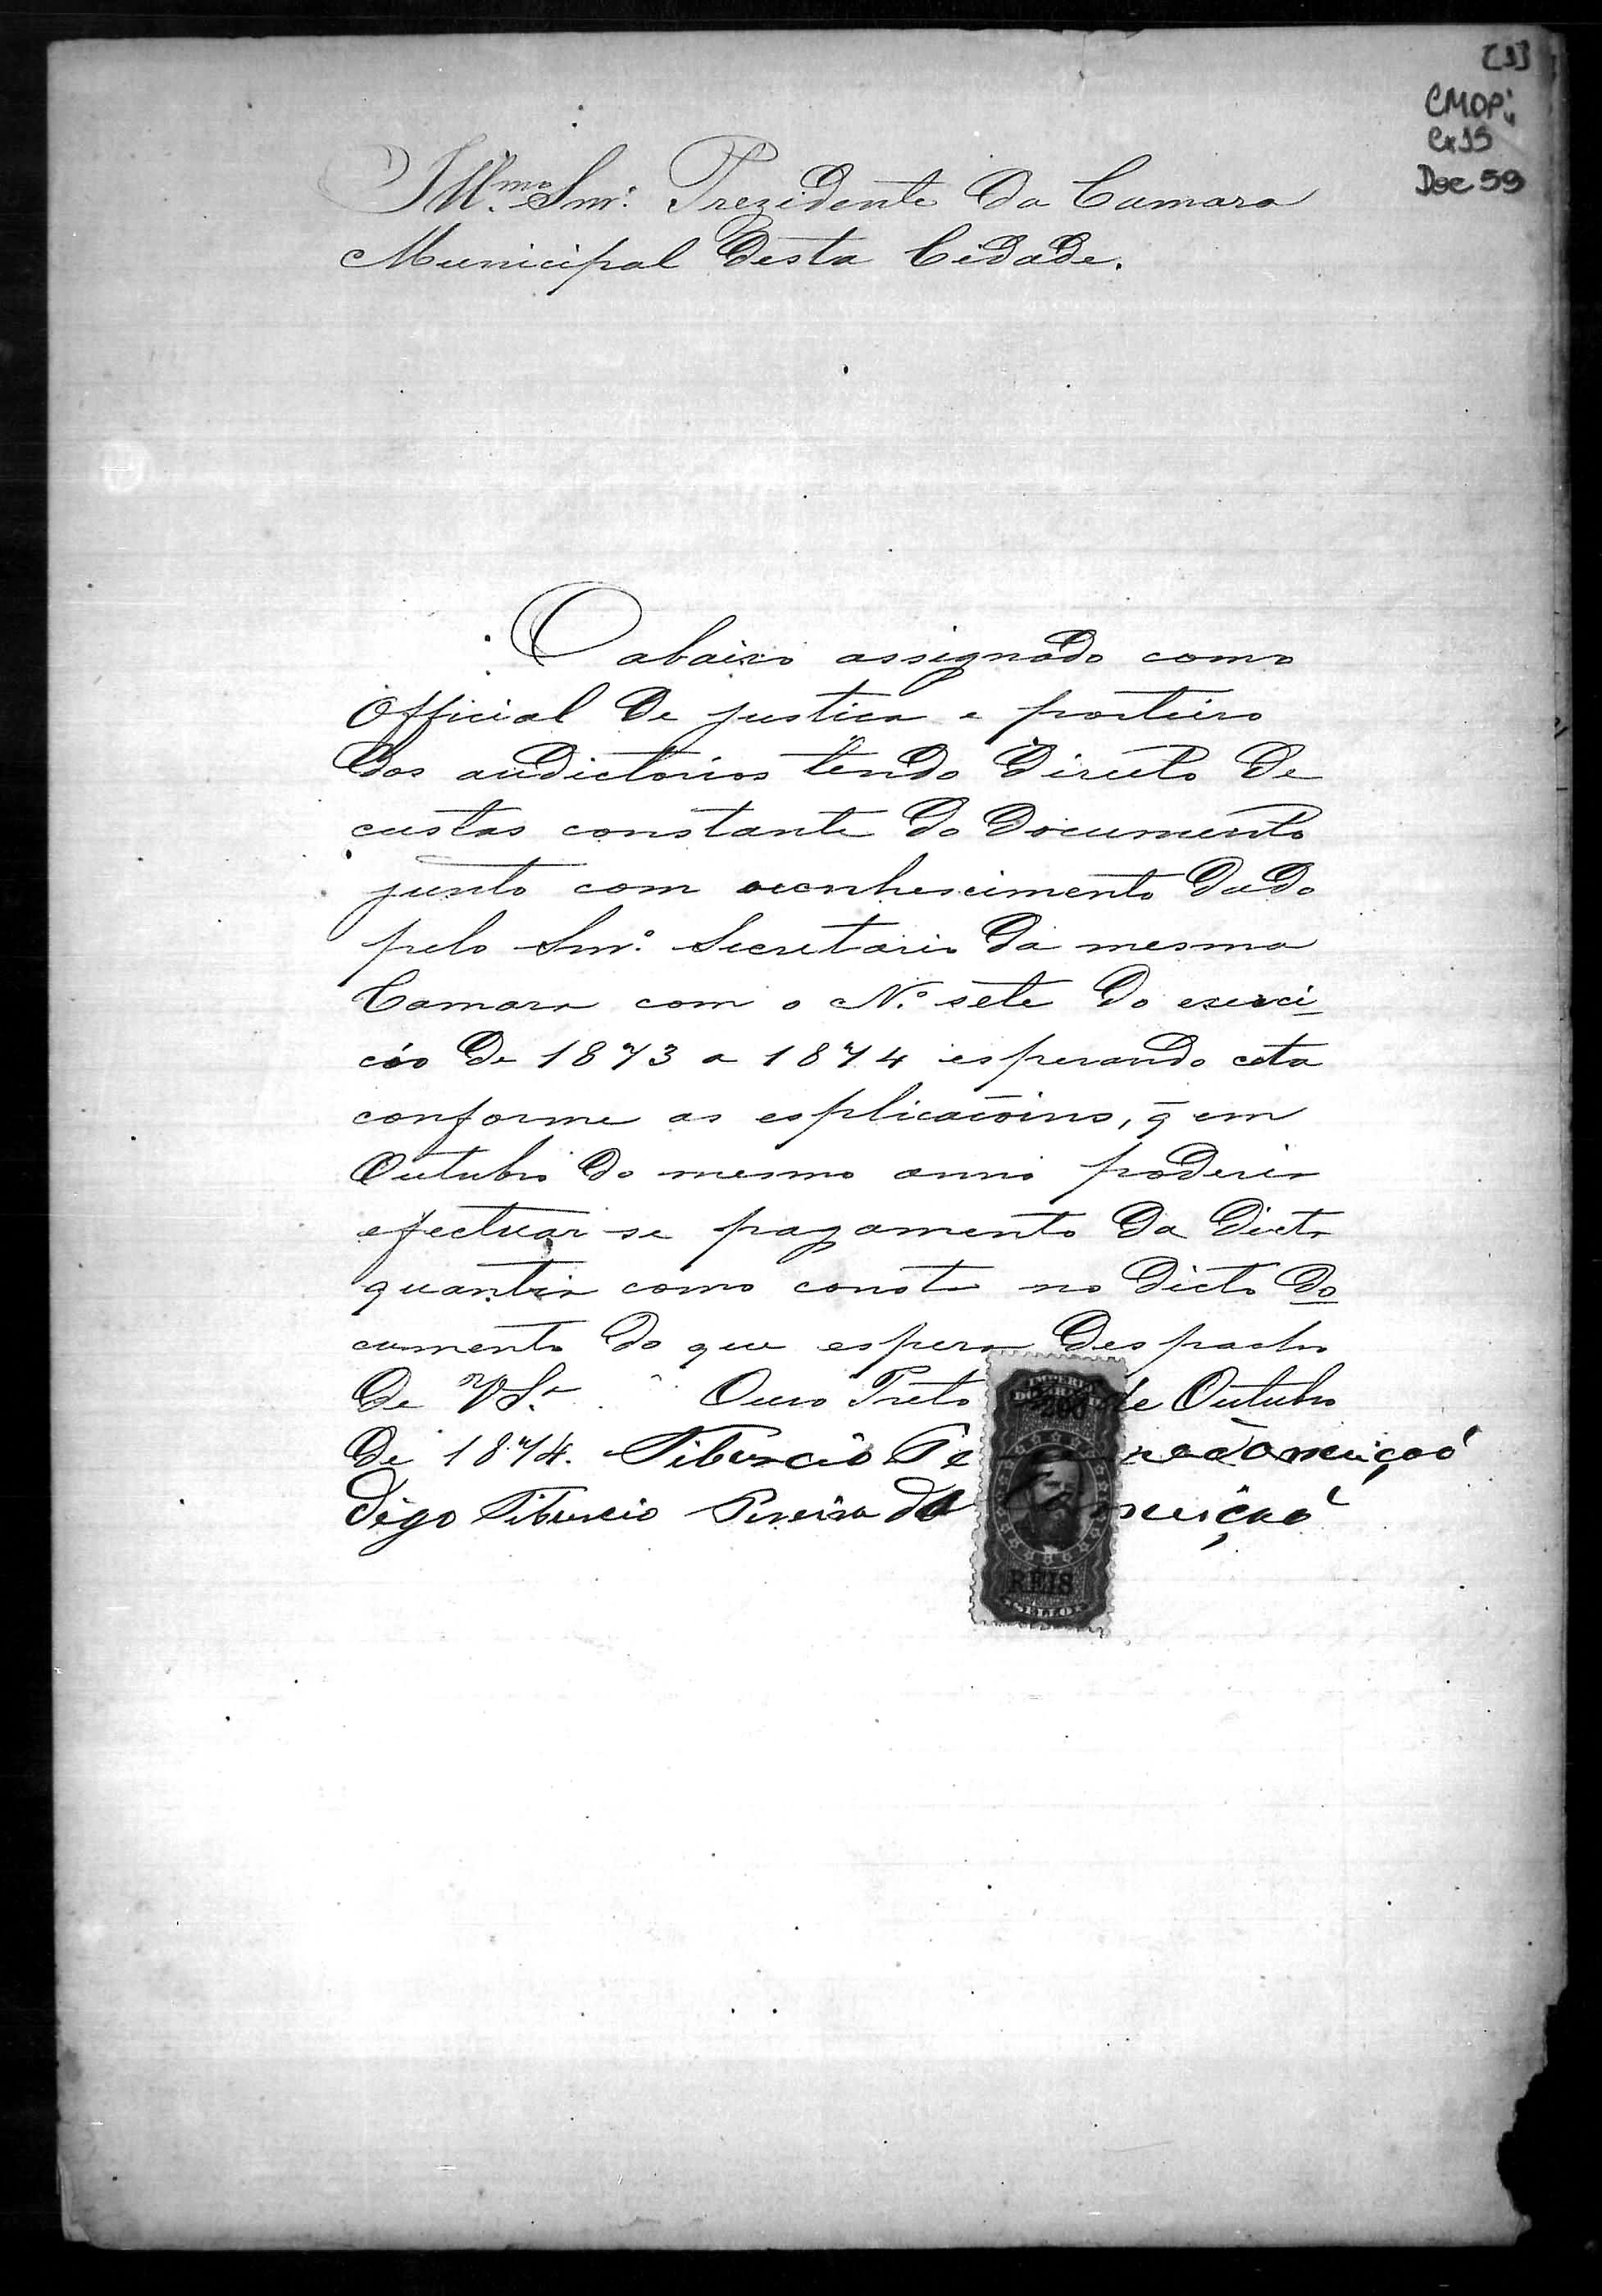 [1]
CMOP;
Cx15
Doc 59
Illmo. Snr. Prezidente da Camara
Municipal desta Cidade.
O abaixo assignado como
Official de justica e porteiro
dos audictorios tendo direito de
custas constante do documento
junto com oconhescimento dado
pelo Snr. Secretario da mesma
Camara com o No. sete do exerci
cio de 1873 a 1874 esperando esta
conforme as esplicacõins, q̃ em
Outubro do mesmo anno poderia
efectuar-se pagamento da dicta
quantia como consta no dicto do
cumento do que espera despacho
de VSa. Ouro Preto de Outubro
de 1874. Tiburcio Pe
digo Tiburcio Pereira da
IMPERIO
DO BRAZIL
200
REIS
SELLO